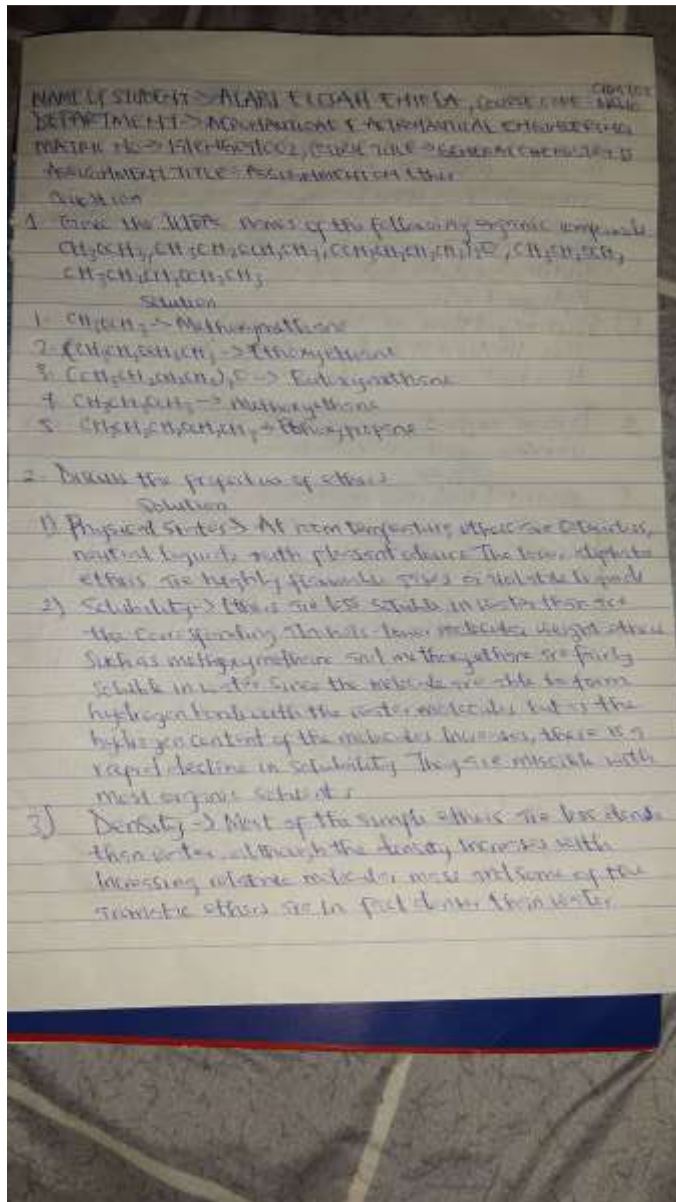 NAME OF STUDENT → ELIJAH COURSE CODE
DEPARTMENT → & ENGINEERING
MATRIC NO → COURSE TITLE → GENERAL CHEMISTRY II
ASSIGNMENT TITLE: ASSIGNMENT ON Ether
Question
1. Give the IUPAC names of the following organic compounds
CH3OCH3, CH3CH2OCH2CH3, (CH3CH2CH2CH2)2O, CH3CH2OCH3
CH3CH2CH2OCH2CH3
Solution
1. CH3OCH3 → Methoxymethane
2. CH3CH2OCH2CH3 → Ethoxyethane
3. (CH3CH2CH2CH2)2O →
4. CH3CH2OCH3 → Methoxyethane
5. CH3CH2CH2OCH2CH3 → Ethoxypropane
2. Discuss the properties of ethers
Solution
1) Physical States → At room temperature, ethers are Colourless,
neutral liquids with pleasant odours. The lower aliphatic
ethers are highly flammable gases or volatile liquids
2) Solubility → Ethers are less soluble in water than are
the corresponding alcohols. lower molecular weight ethers
Such as methoxymethane and methoxyethane are fairly
soluble in water since the molecules are able to form
hydrogen bonds with the water molecules but as the
content of the molecules Increases, there is a
rapid decline in solubility. They are miscible with
most organic solvents
3) Density → Most of the simple ethers are less dense
than water, although the density Increases with
Increasing relative molecular mass and some of the
aromatic ethers are In fact denser than water.